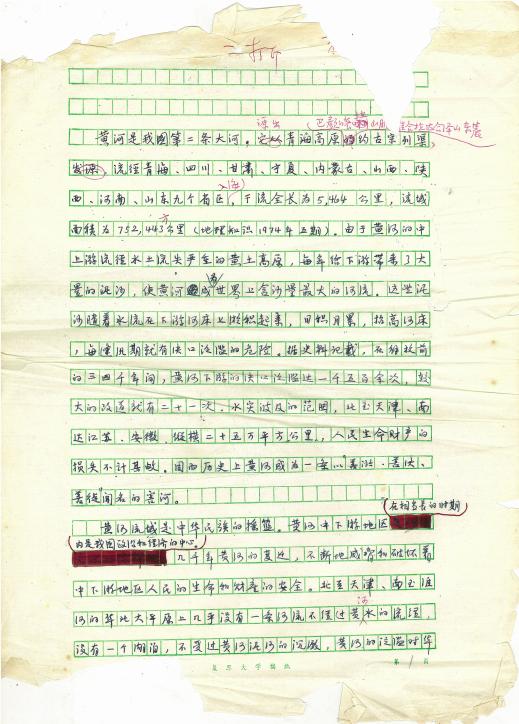 二 打厅
源出(巴颜喀拉山
黄河是我国第二条大河。它从青海高原的约古宗列渠
发源,流经青海、四川、甘肃、宁夏、内蒙古、山西、陕
入海
西、河南、山东九个省区,干流全长为5,464公里,流域
方
面积为752,443公里(地理知识1974年五期)。由于黄河的中
上游流经水土流失严重的黄土高原,每年给下游带来了大
量的泥沙,使黄河成世界上含沙量最大的河流。这些泥
沙随着水流在下游河床上淤积起来,日积月累,抬高河床
,每逢汛期就有决口泛滥的危险。据史料记载,在解放前
的三四千年间,黄河下游的决口泛滥达一千五百余次,较
大的改道就有二十一次。水灾波及的范围,北至天津、南
达江苏、安徽,纵横二十五万平方公里,人民生命财产的
损失不计其数。因而历史上黄河成为一条以“善淤、善决、
善徙”闻名的害河。
在相当长的时期
黄河流域是中华民族的摇篮。黄河中下游地区
内是我国政治和经济的中心
几千年黄河的变迁,不断地威胁和破坏着
中下游地区人民的生命和财产的安全。北至天津、南至淮
河
河的华北大平原上几乎没有一条河流不经过黄水的流经,
没有一个湖泊,不受过黄河泥沙的沉澱,黄河的泛滥对华
复旦大学稿纸
第1页